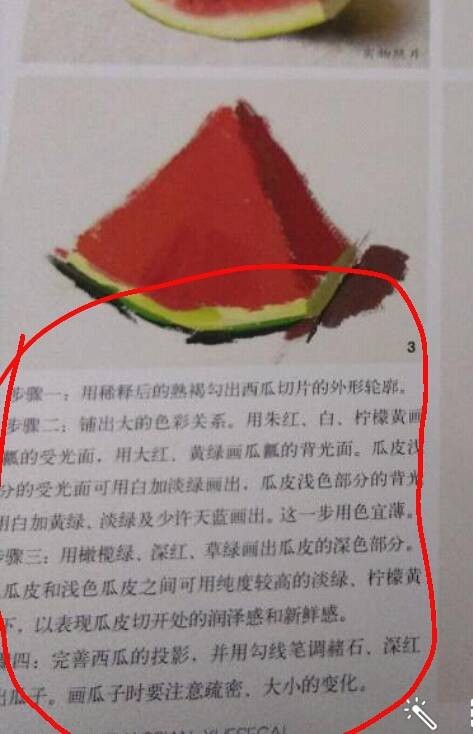 实物照片
3
步骤一：用稀释后的熟褐勾出西瓜切片的外形轮廓。
步骤二：铺出大的色彩关系。用朱红、白、柠檬黄画
瓤的受光面，用大红、黄绿画瓜瓤的背光面。瓜皮浅
分的受光面可用白加淡绿画出，瓜皮浅色部分的背光
用白加黄绿、淡绿及少许天蓝画出。这一步用色宜薄。
骤三：用橄榄绿、深红、草绿画出瓜皮的深色部分。
瓜皮和浅色瓜皮之间可用纯度较高的淡绿、柠檬黄
下，以表现瓜皮切开处的润泽感和新鲜感。
骤四：完善西瓜的投影，并用勾线笔调赭石、深红
出瓜子。画瓜子时要注意疏密、大小的变化。